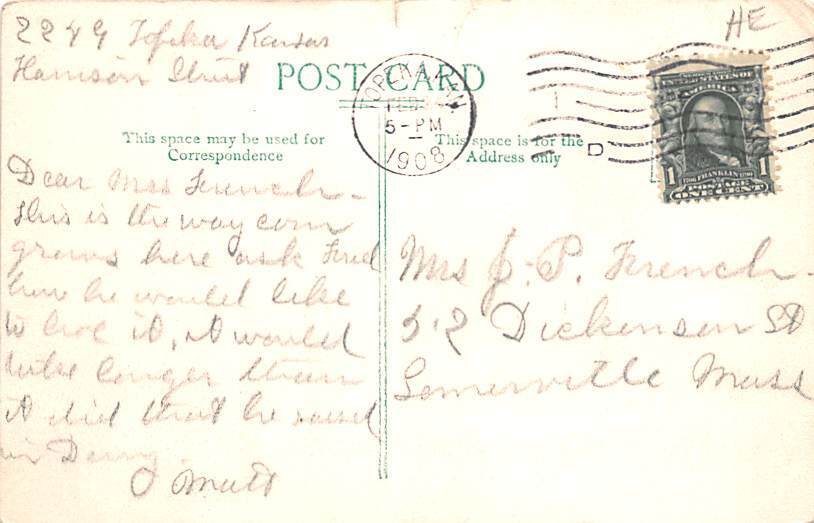 HE
2249 Topeka Kansas
Harrison Street
POST CARD
TOPEKA, KAN
FEB
5-PM
1908
D
UNITED STATES OF
AMERICA
1706 FRANKLIN 1790
1 POSTAGE 1
ONE CENT
This space may be used for
Correspondence
This space is for the
Address only
Dear Mrs French -
this is the way corn
grows here ask Fred
how he would like
to hoe it, it would
take longer than
it did that he raised
in
Mrs J. P. French -
52 Dickenson St
Somerville Mass